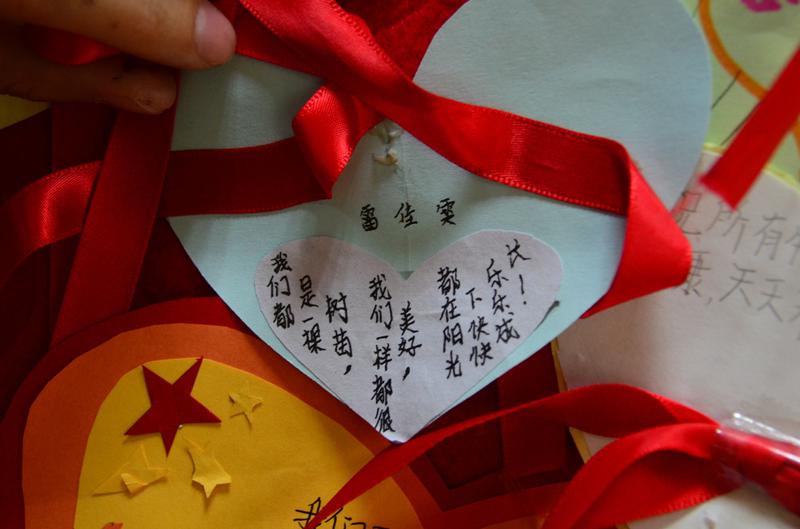 雷佳雯
我们都
是一棵
树苗，
我们一样都很
美好，
都在阳光
下快快
乐乐成
长！
所有
康，天天
我们